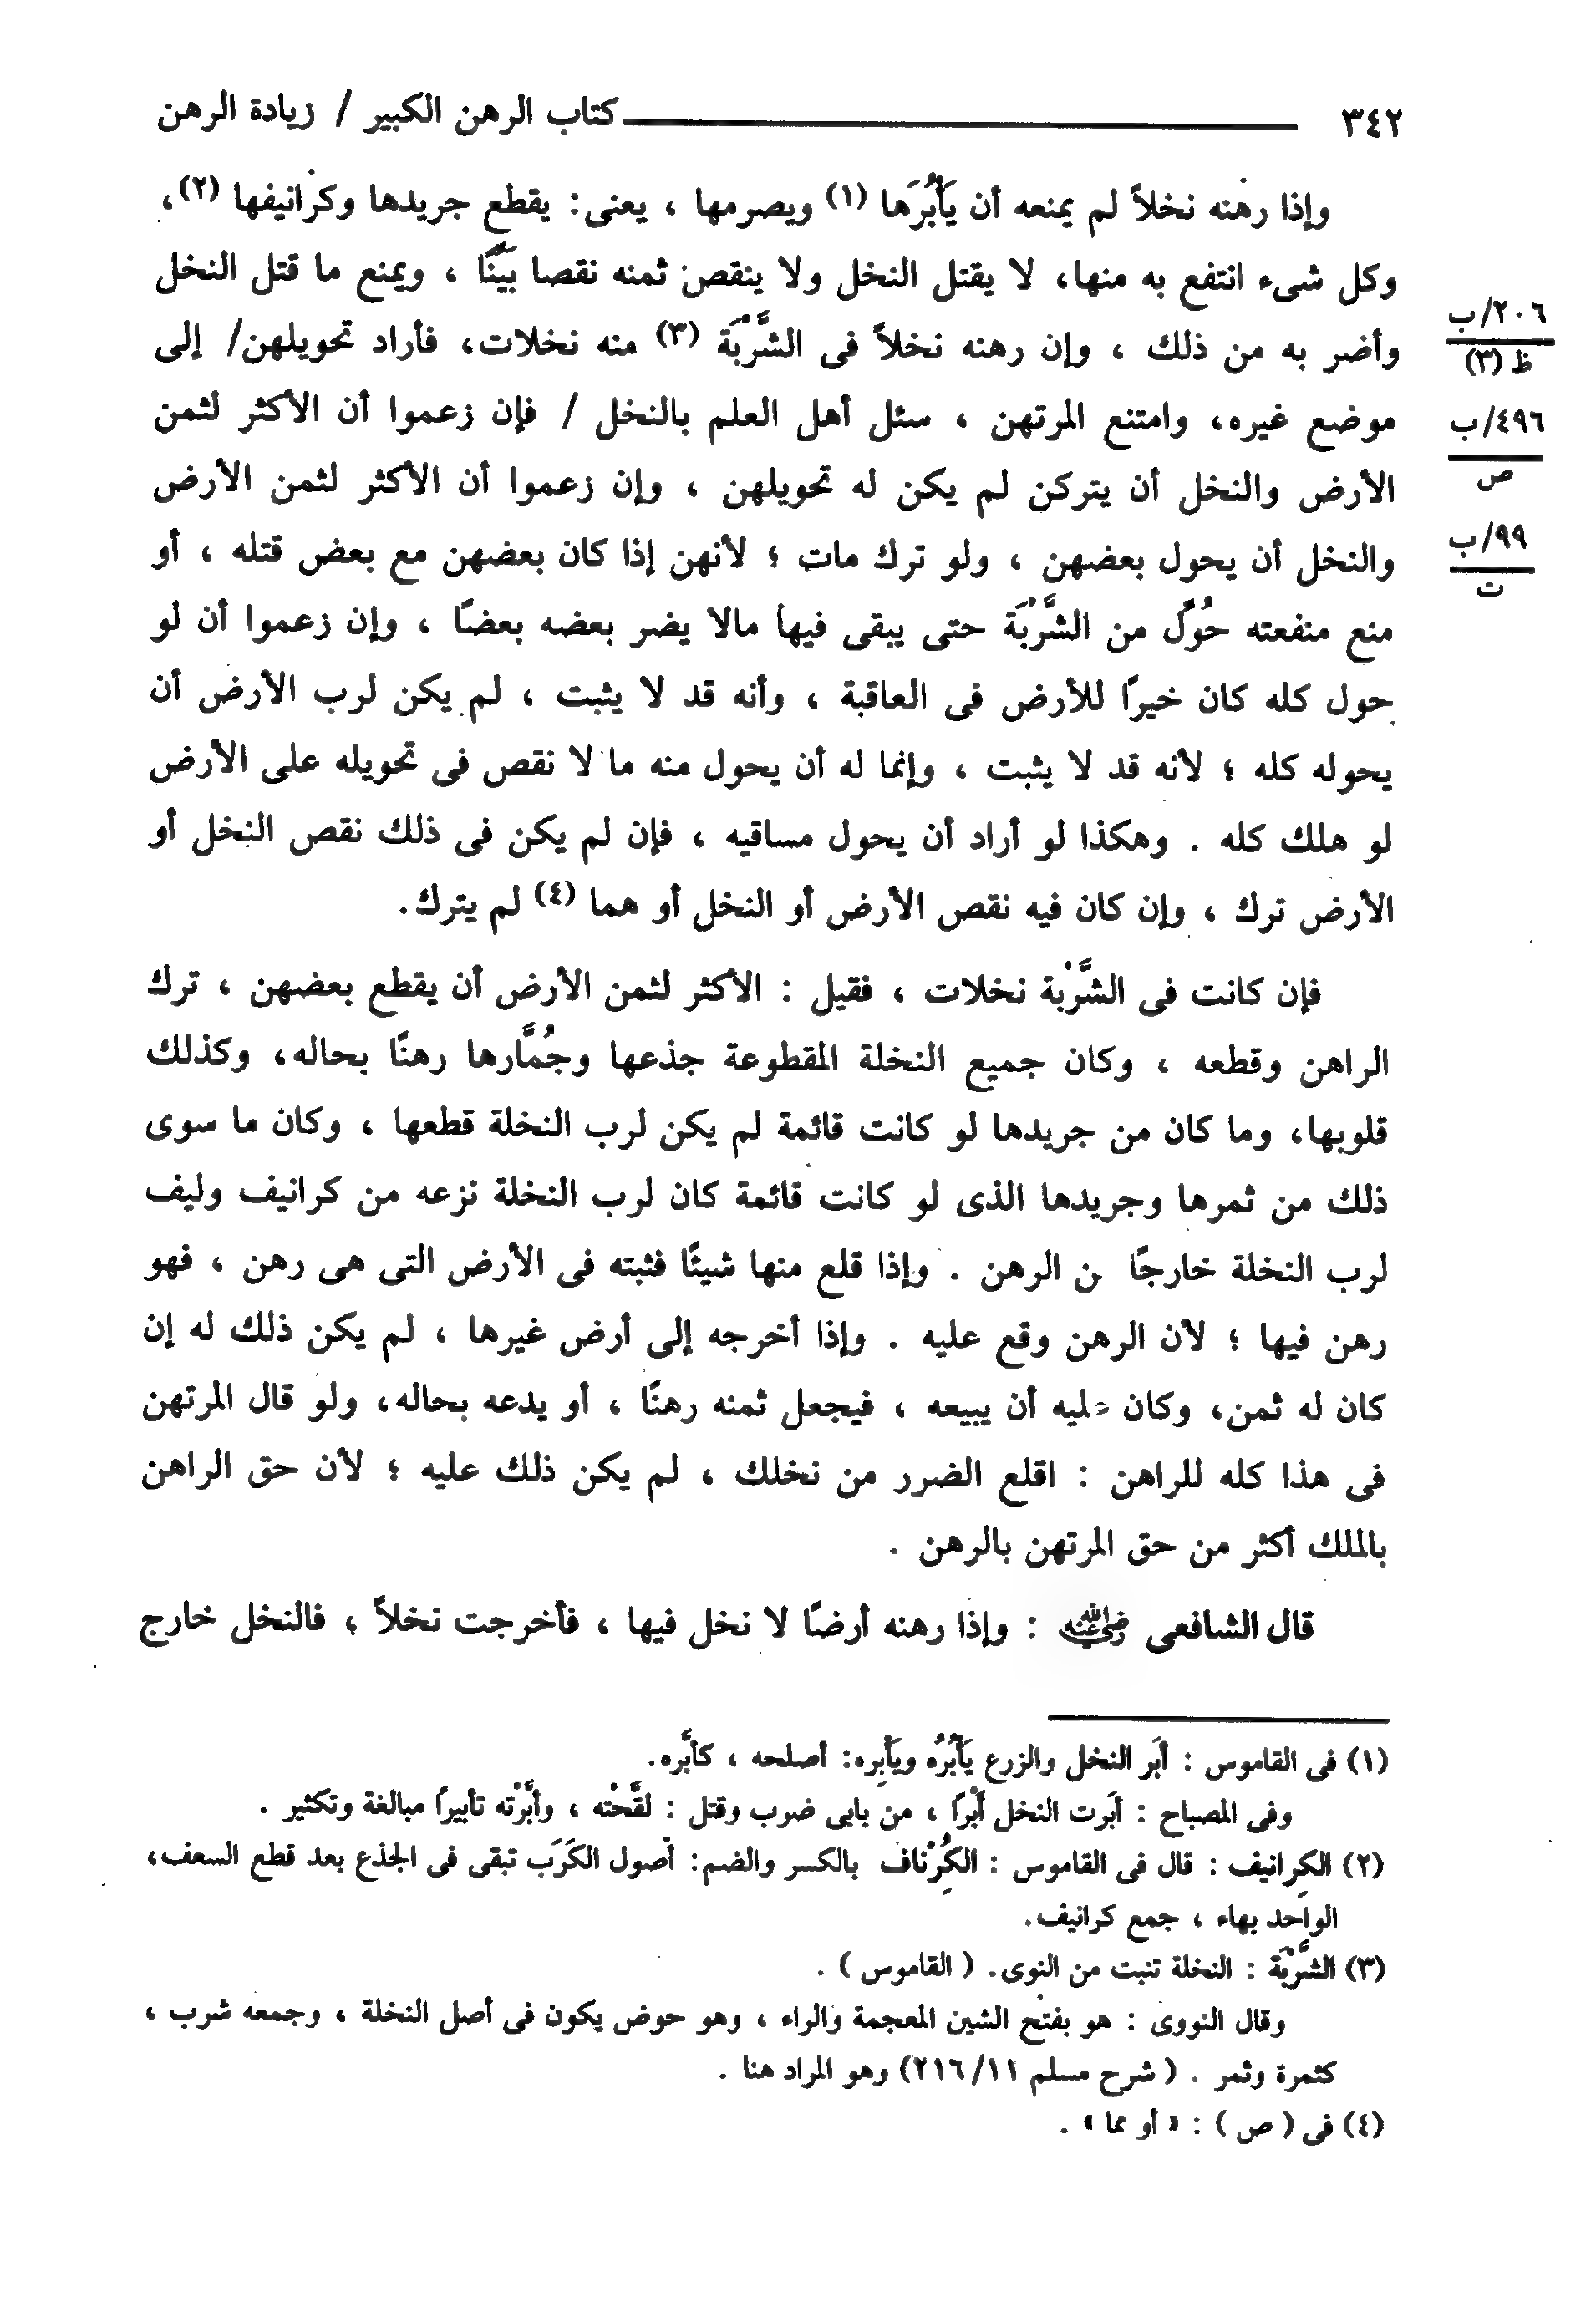 ٣٤٢ كتاب الرهن الكبير / زيادة الرهن
وإذا رهنه نخلاً لم يمنعه أن يَأْبُرَها (١) ويصرمها ، يعنى: يقطع جريدها وكرانيفها (٢)،
وكل شىء انتفع به منها، لا يقتل النخل ولا ينقص ثمنه نقصا بَيِّنًا ، ويمنع ما قتل النخل
وأضر به من ذلك ، وإن رهنه نخلاً فى الشَّرَبَّة (٣) منه نخلات، فأراد تحويلهن/ إلى
٢٠٦/ب
ظ (٣)
موضع غيره، وامتنع المرتهن ، سئل أهل العلم بالنخل / فإن زعموا أن الأكثر لثمن
٤٩٦/ب
ص
الأرض والنخل أن يتركن لم يكن له تحويلهن ، وإن زعموا أن الأكثر لثمن الأرض
والنخل أن يحول بعضهن ، ولو ترك مات ؛ لأنهن إذا كان بعضهن مع بعض قتله ، أو
٩٩/ب
ت
منع منفعته حُوِّل من الشَّرَبَّة حتى يبقى فيها مالا يضر بعضه بعضًا ، وإن زعموا أن لو
حول كله كان خيرًا للأرض فى العاقبة ، وأنه قد لا يثبت ، لم يكن لرب الأرض أن
يحوله كله ؛ لأنه قد لا يثبت ، وإنما له أن يحول منه ما لا نقص فى تحويله على الأرض
لو هلك كله . وهكذا لو أراد أن يحول مساقيه ، فإن لم يكن فى ذلك نقص النخل أو
الأرض ترك ، وإن كان فيه نقص الأرض أو النخل أو هما (٤) لم يترك.
فإن كانت فى الشَّرَبَّة نخلات ، فقيل : الأكثر لثمن الأرض أن يقطع بعضهن ، ترك
الراهن وقطعه ، وكان جميع النخلة المقطوعة جذعها وجُمَّارها رهنًا بحاله، وكذلك
قلوبها، وما كان من جريدها لو كانت قائمة لم يكن لرب النخلة قطعها ، وكان ما سوى
ذلك من ثمرها وجريدها الذى لو كانت قائمة كان لرب النخلة نزعه من كرانيف وليف
لرب النخلة خارجًا من الرهن . وإذا قلع منها شيئًا فثبته فى الأرض التى هى رهن ، فهو
رهن فيها ؛ لأن الرهن وقع عليه . وإذا أخرجه إلى أرض غيرها ، لم يكن ذلك له إن
كان له ثمن، وكان عليه أن يبيعه ، فيجعل ثمنه رهنًا ، أو يدعه بحاله، ولو قال المرتهن
فى هذا كله للراهن : اقلع الضرر من نخلك ، لم يكن ذلك عليه ؛ لأن حق الراهن
بالملك أكثر من حق المرتهن بالرهن .
قال الشافعى رضي الله عنه : وإذا رهنه أرضًا لا نخل فيها ، فأخرجت نخلاً ، فالنخل خارج
(١) فى القاموس : أَبَر النخل والزرع يَأْبُرُه ويَأْبِره: أصلحه ، كأَبَّره.
وفى المصباح : أبَرت النخل أَبْرًا ، من بابى ضرب وقتل : لقَّحْته ، وأبَّرْته تأبيرًا مبالغة وتكثير .
(٢) الكِرانيف : قال فى القاموس : الكُِرْناف بالكسر والضم: أصول الكَرَب تبقى فى الجذع بعد قطع السعف،
الواحد بهاء ، جمع كرانيف.
(٣) الشَّرَبَّة : النخلة تنبت من النوى. ( القاموس ) .
وقال النووى : هو بفتح الشين المعجمة والراء ، وهو حوض يكون فى أصل النخلة ، وجمعه شرب ،
كثمرة وثمر . ( شرح مسلم ٢١٦/١١) وهو المراد هنا .
(٤) فى ( ص ) : « أو مما » .